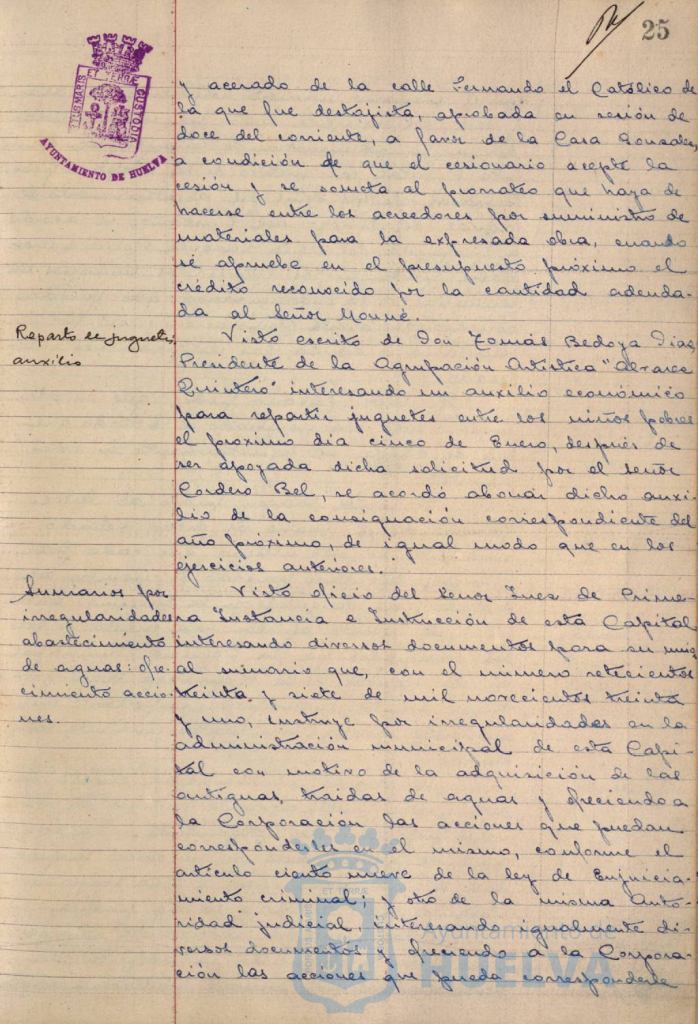 25
PORTUS MARIS ET TERRÆ CUSTODIA
AYUNTAMIENTO DE HUELVA
y acerado de la calle Fernando el Católico de
la que fue destajista, aprobada en sesión de
doce del corriente, a favor de la Casa Gonzalez,
a condición de que el cesionario acepte la
cesión y se someta al prorrateo que haya de
hacerse entre los acreedores por suministro de
materiales para la expresada obra, cuando
se apruebe en el presupuesto próximo el
crédito reconocido por la cantidad adeuda-
da al Señor
Reparto de juguetes,
auxilio
Visto escrito de Don Tomás Bedoya Dias,
Presidente de la Agrupación Artística "Alvarez
Quintero" interesando un auxilio económico
para repartir juguetes entre los niños pobres
el próximo dia cinco de Enero, después de
ser apoyada dicha solicitud por el Señor
Cordero Bel, se acordó abonar dicho auxi-
lio de la consignación correspondiente del
año próximo, de igual modo que en los
ejercicios anteriores.
Sumarios por
irregularidades
abastecimiento
de aguas: ofre-
cimiento accio-
nes.
Visto oficio del Señor Juez de Prime-
ra Instancia e Instrucción de esta Capital
interesando diversos documentos para su unión
al sumario que, con el número setecientos
treinta y siete de mil novecientos treinta
y uno, instruye por irregularidades en la
administración municipal de esta Capi-
tal con motivo de la adquisición de las
antiguas traidas de aguas y ofreciendo a
la Corporación las acciones que puedan
corresponderles en el mismo, conforme el
artículo ciento nueve de la ley de Enjuicia-
miento criminal; y otro de la misma Auto-
ridad judicial, interesando igualmente di-
versos documentos y ofreciendo a la Corpora-
ción las acciones que pueda corresponderle
Ayuntamiento de
HUELVA